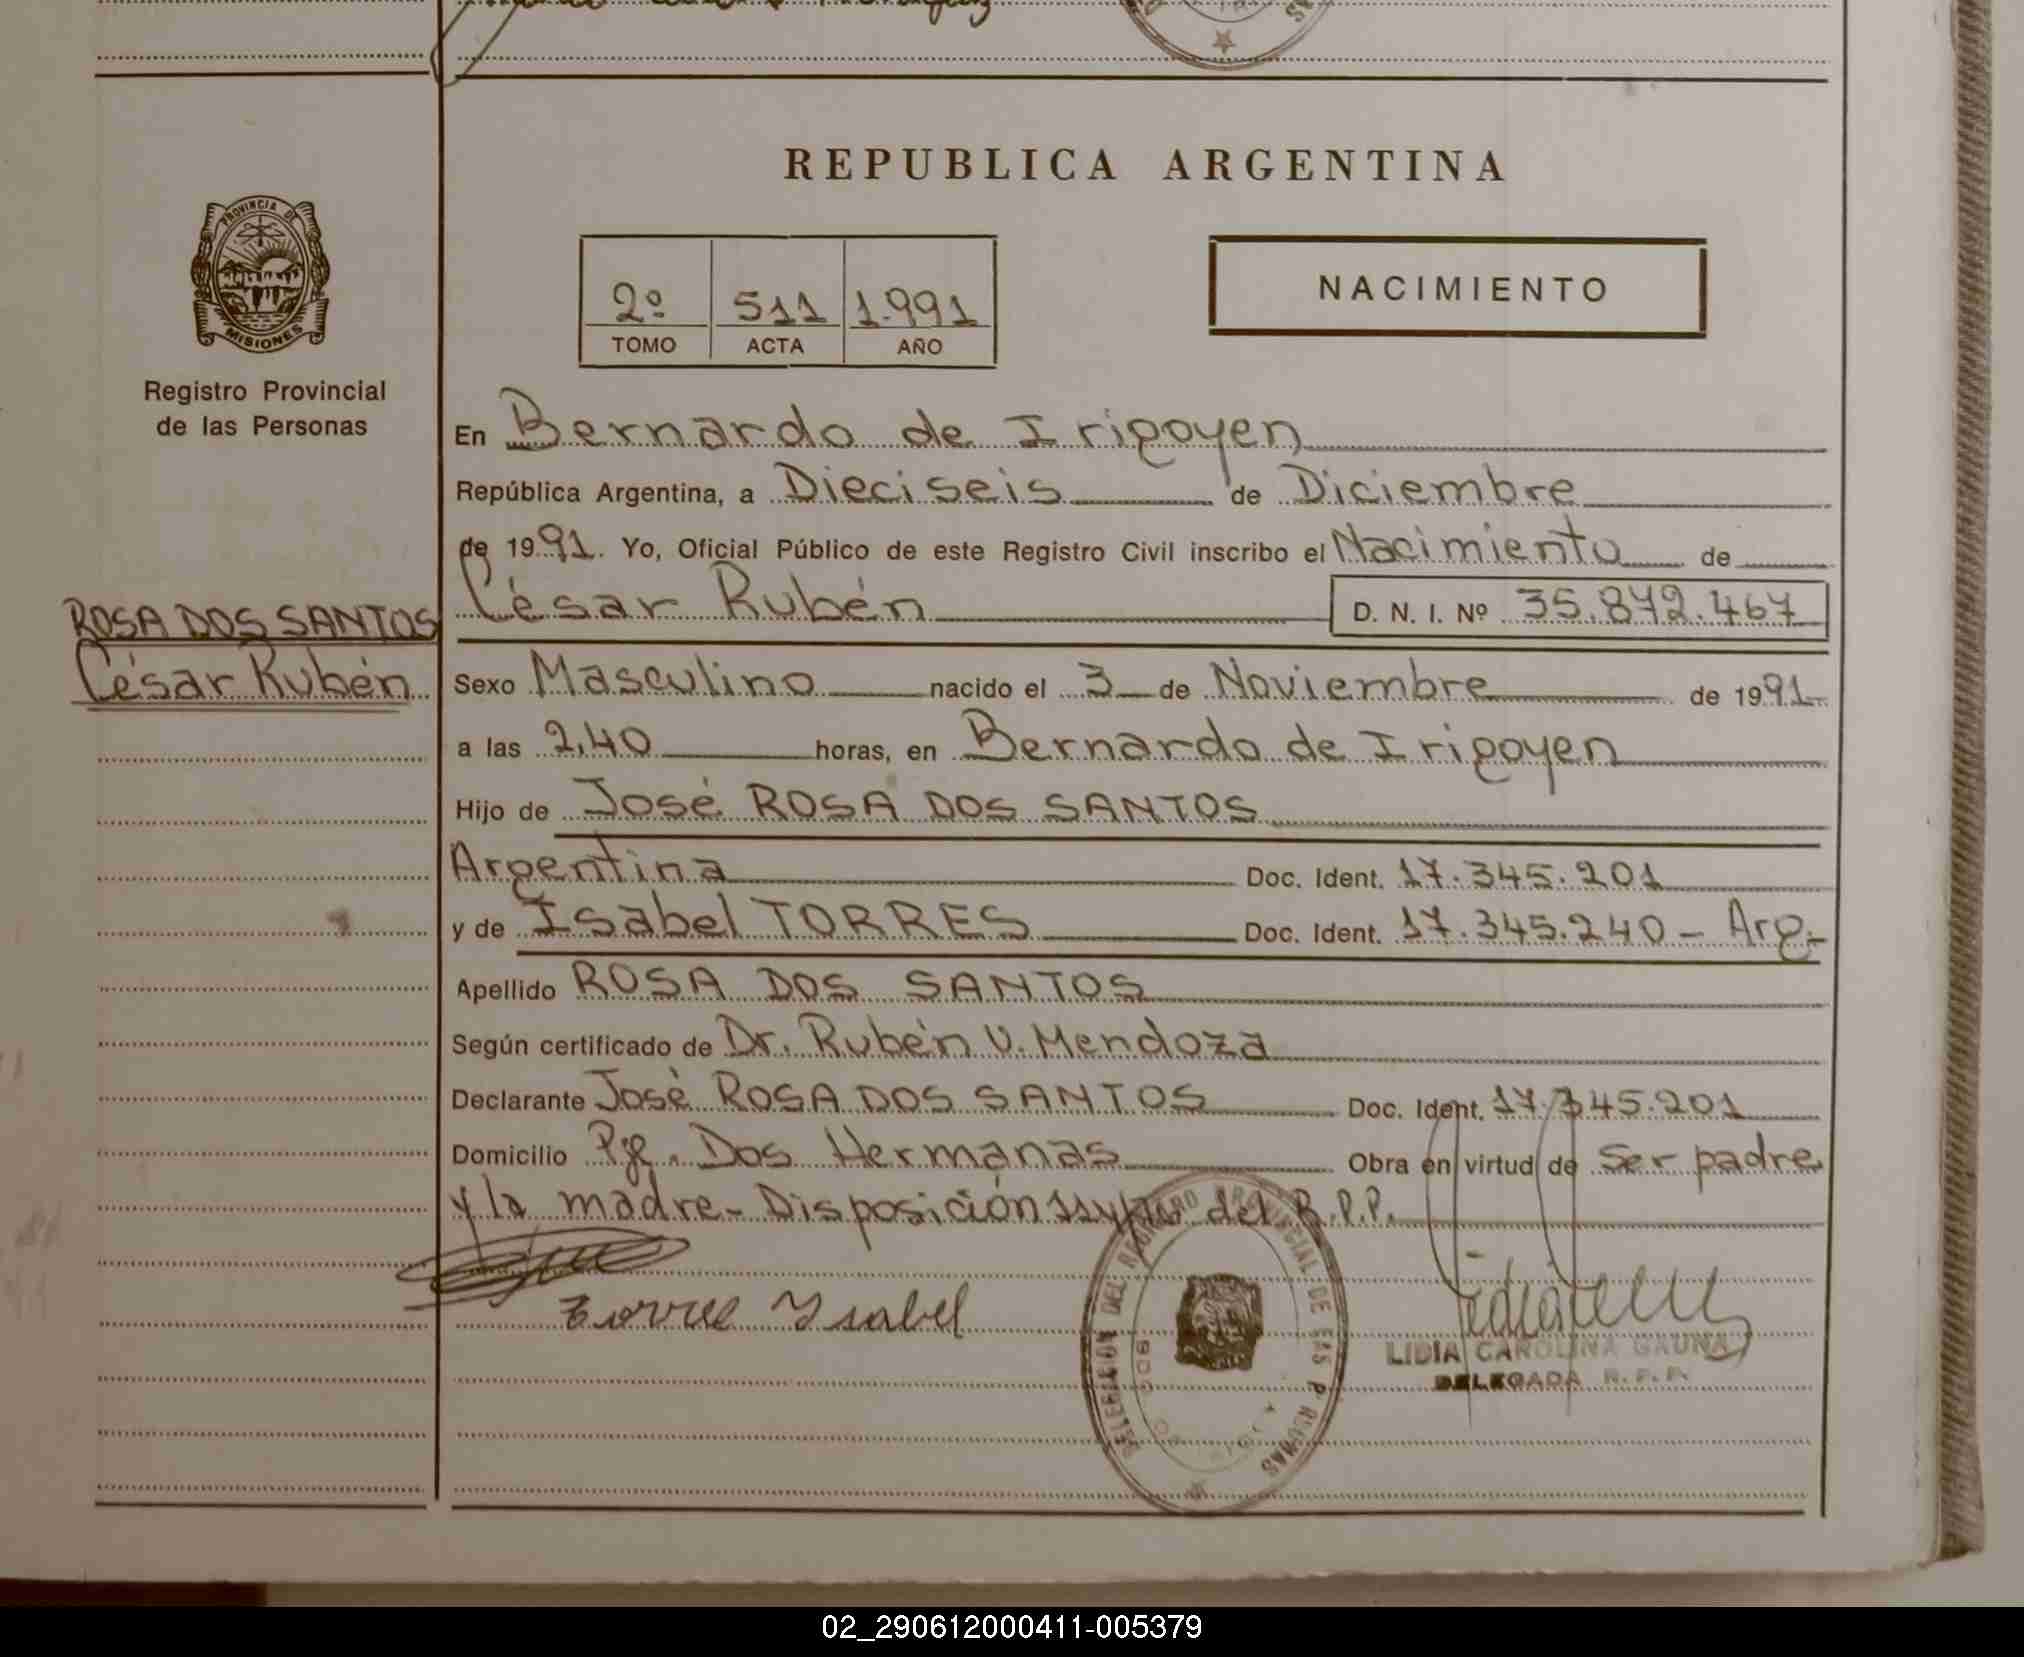 REPUBLICA ARGENTINA
PROVINCIA DE
MISIONES
2º 511 1.991
TOMO ACTA AÑO
NACIMIENTO
Registro Provincial
de las Personas
En Bernardo de Irigoyen
República Argentina, a Dieciseis de Diciembre
de 1991. Yo, Oficial Público de este Registro Civil inscribo el Nacimiento de
César Rubén D. N. I. Nº 35.872.467
ROSA DOS SANTOS
César Rubén
Sexo Masculino nacido el 3 de Noviembre de 1991.
a las 2,40 horas, en Bernardo de Irigoyen
Hijo de José ROSA DOS SANTOS
Argentina Doc. Ident. 17.345.201
y de Isabel TORRES Doc. Ident. 17.345.240 - Arg.-
Apellido ROSA DOS SANTOS
Según certificado de Dr. Rubén V. Mendoza
Declarante José ROSA DOS SANTOS Doc. Ident. 17.345.201
Domicilio Pje. Dos Hermanas Obra en virtud de Ser padre
y la madre- Disposición del R.P.P.
Torre Ysabel
DELEGACION DEL REGISTRO PROVINCIAL DE LAS PERSONAS
LIDIA CAROLINA GAUNA
DELEGADA R.P.P.
02_290612000411-005379